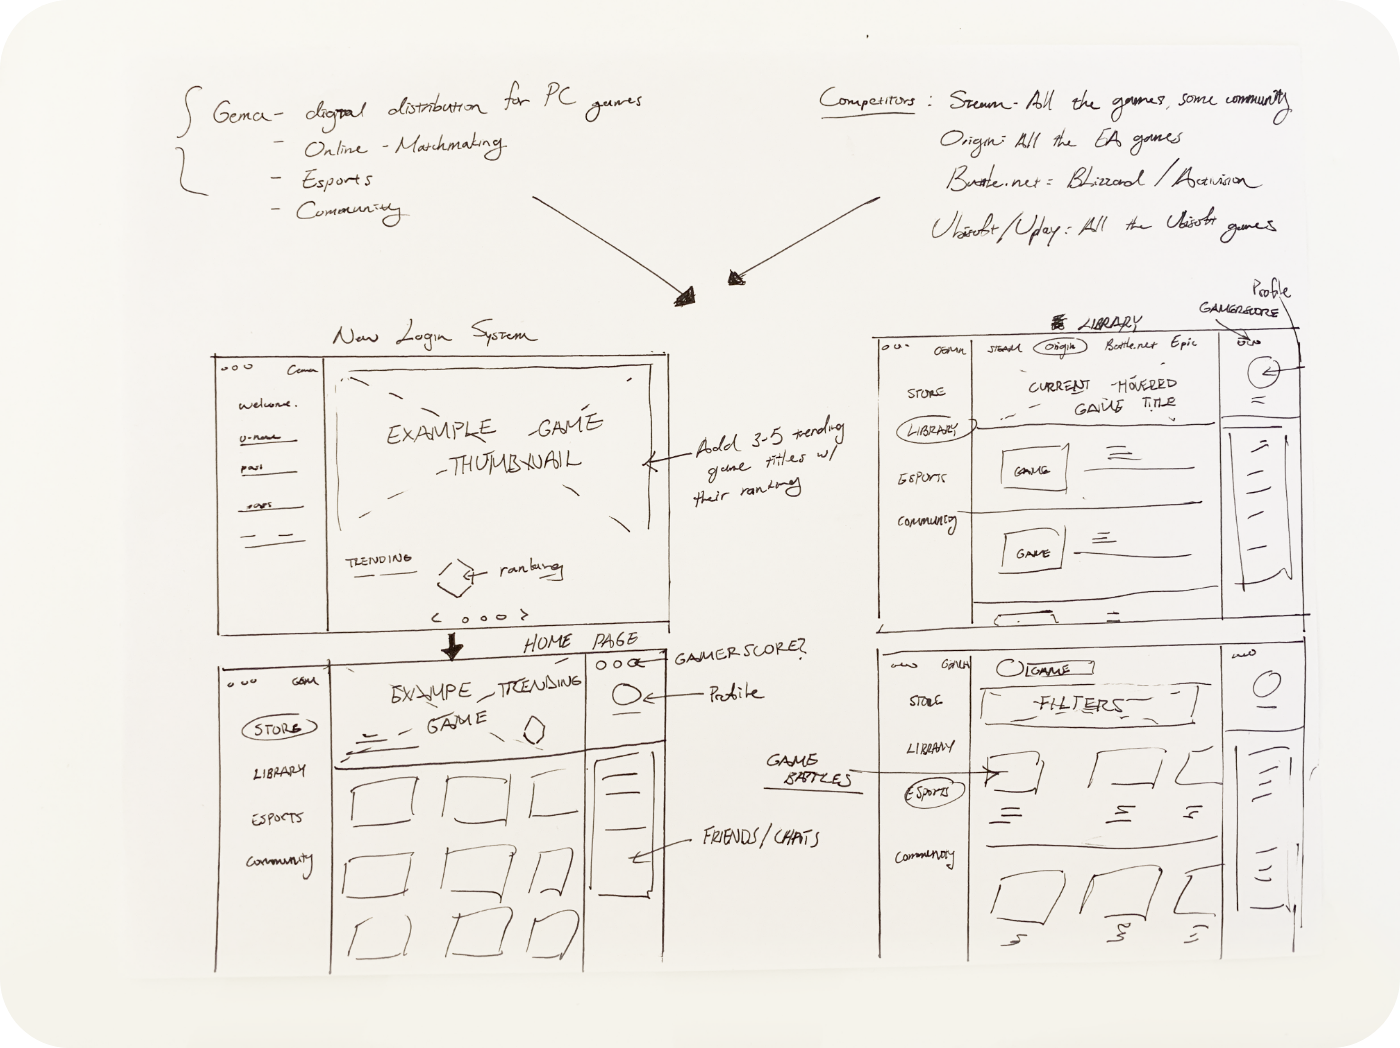 Gema - digital distribution for PC games
- Online - Matchmaking
- Esports
- Community
Competitors : Steam - All the games, some community
Origin: All the EA games
Battle.net: Blizzard / Activision
Ubisoft/Uplay: All the Ubisoft games
New Login System
Gema
Welcome.
U-name
pass
EXAMPLE GAME
THUMBNAIL
TRENDING
ranking
< o o o >
Add 3-5 trending
game titles w/
their ranking
HOME PAGE
GEMA
STORE
LIBRARY
ESPORTS
Community
EXAMPE TRENDING
GAME
GAMERSCORE?
Profile
FRIENDS/CHATS
Profile
GAMERSCORE
LIBRARY
GEMA
STEAM Origin Battle.net Epic
STORE
LIBRARY
ESPORTS
Community
CURRENT HOVERED
GAME TITLE
GAME
GAME
GEMA
STORE
LIBRARY
ESPORTS
Community
GAME
FILTERS
GAME
BATTLES